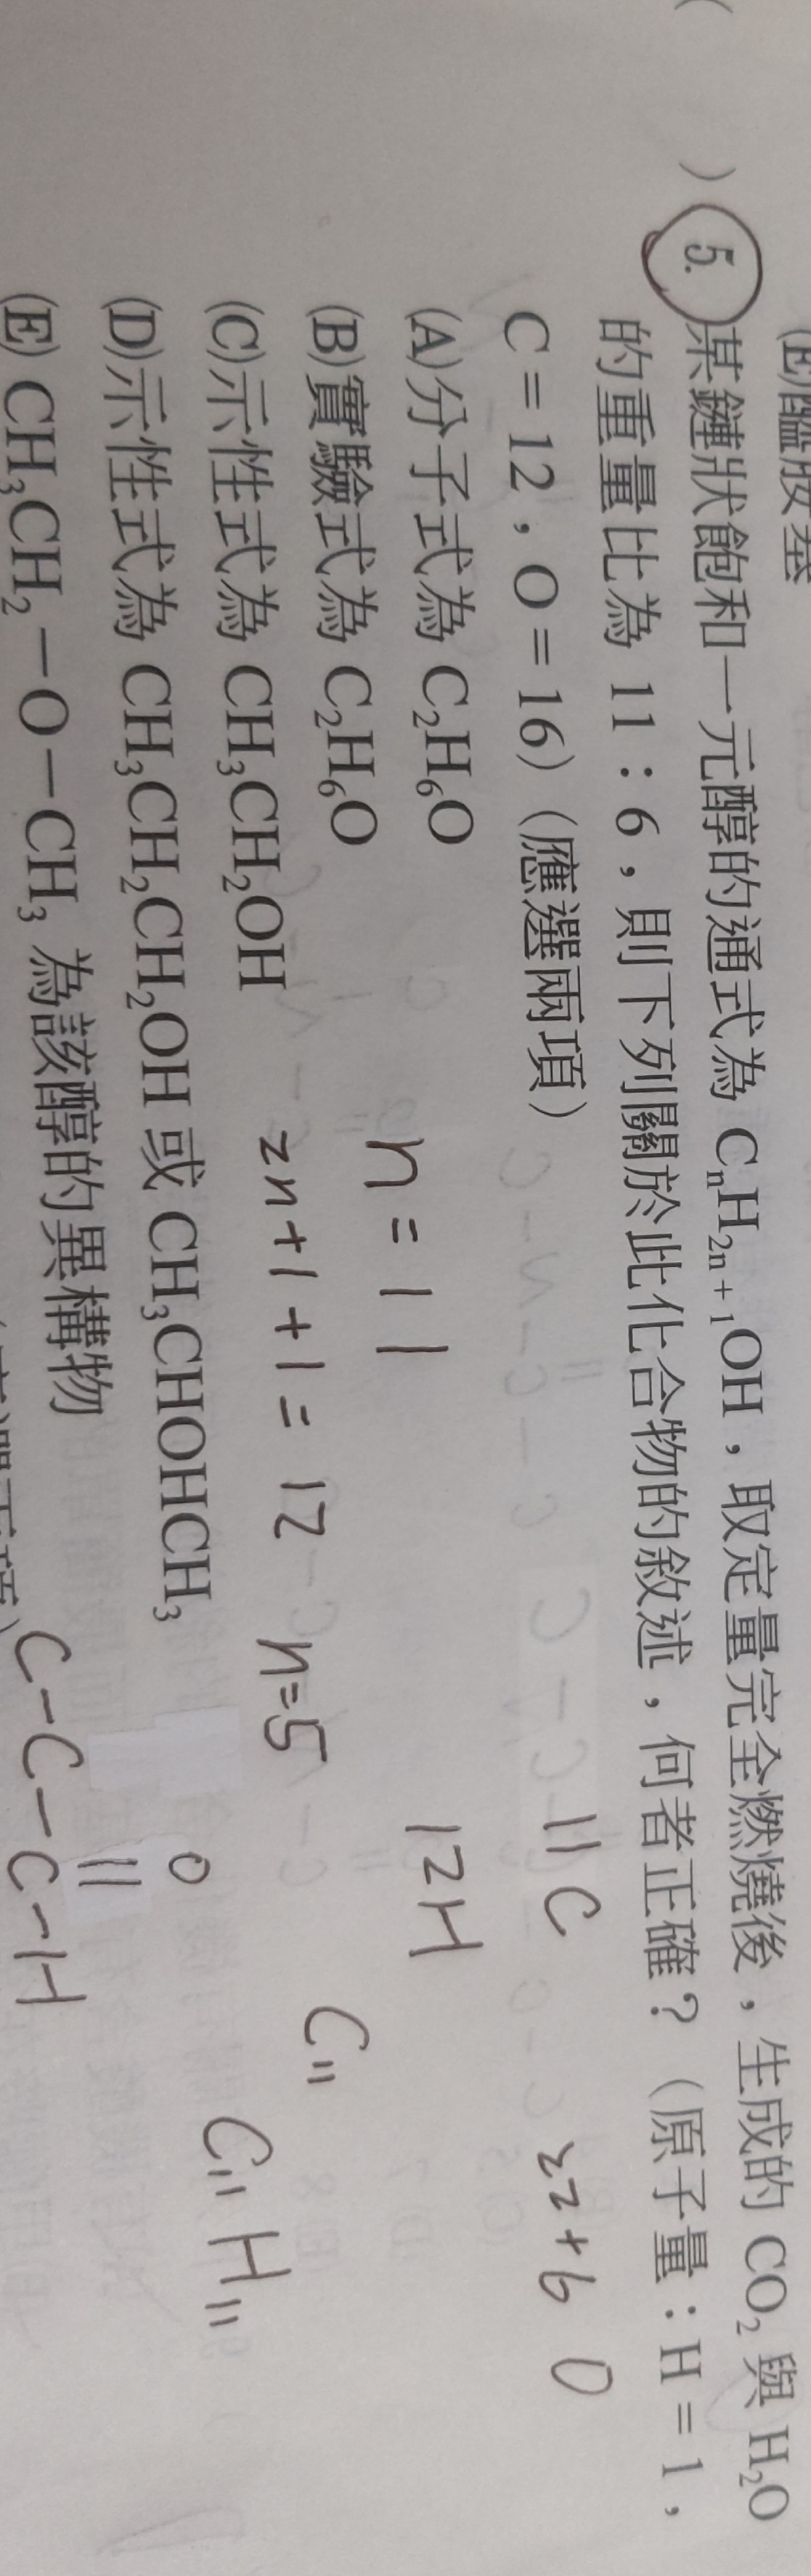 (E)醯胺基
( ) 5. 某鏈狀飽和一元醇的通式為 CₙH₂ₙ₊₁OH,取定量完全燃燒後,生成的 CO₂ 與 H₂O
的重量比為 11:6,則下列關於此化合物的敘述,何者正確?(原子量:H = 1,
C = 12,O = 16)(應選兩項)
(A)分子式為 C₂H₆O
(B)實驗式為 C₂H₆O
(C)示性式為 CH₃CH₂OH
(D)示性式為 CH₃CH₂CH₂OH 或 CH₃CHOHCH₃
(E) CH₃CH₂-O-CH₃ 為該醇的異構物
11C 22+6 O
n = 11 12H
2n+1+1 = 12 n=5
C₁₁
C₁₁ H₁₁
O
||
C-C-C-H